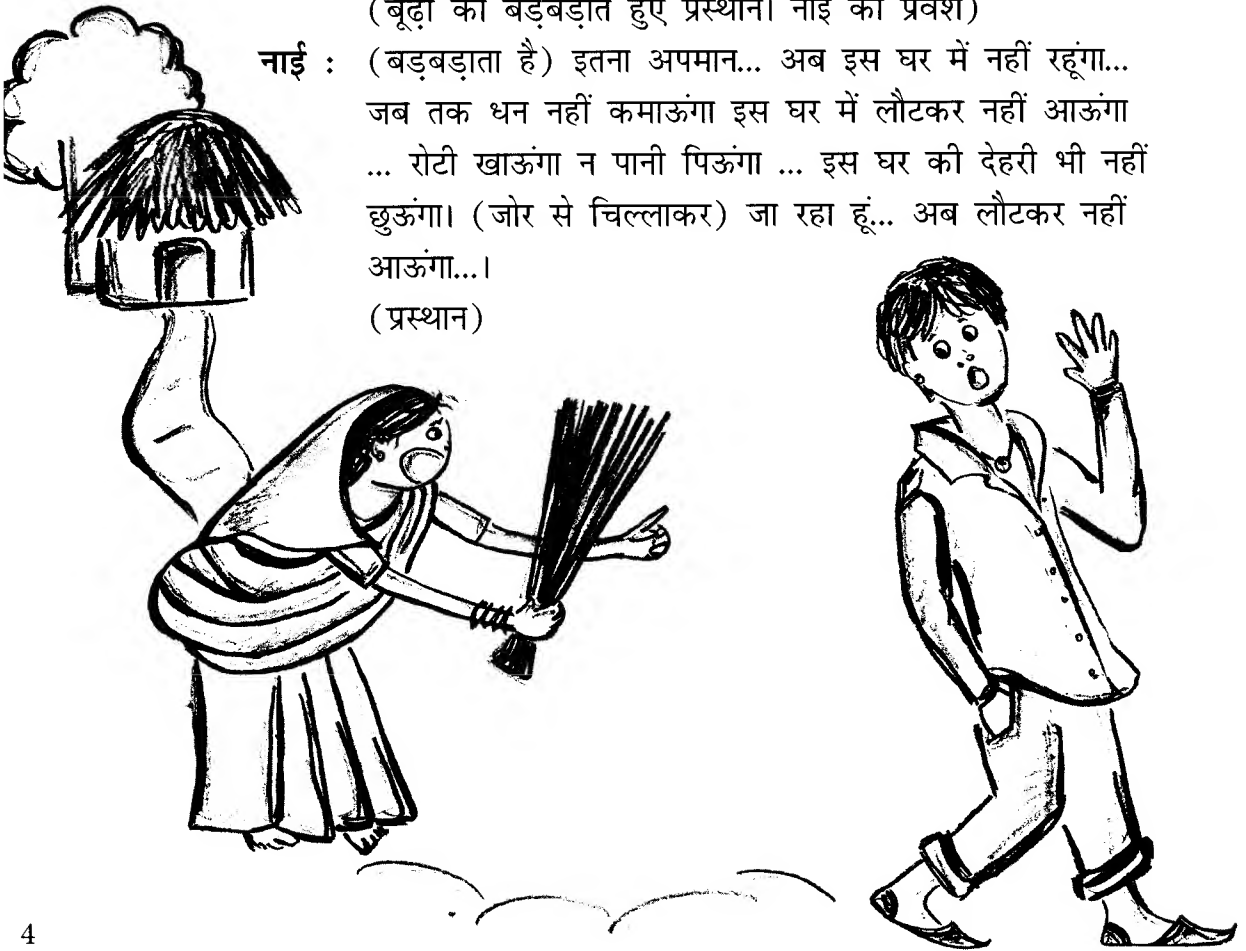 (बूढ़ी का बड़बड़ाते हुए प्रस्थान। नाई का प्रवेश)
नाई : (बड़बड़ाता है) इतना अपमान... अब इस घर में नहीं रहूंगा...
जब तक धन नहीं कमाऊंगा इस घर में लौटकर नहीं आऊंगा
... रोटी खाऊंगा न पानी पिऊंगा ... इस घर की देहरी भी नहीं
छुऊंगा। (जोर से चिल्लाकर) जा रहा हूं... अब लौटकर नहीं
आऊंगा...।
(प्रस्थान)
4